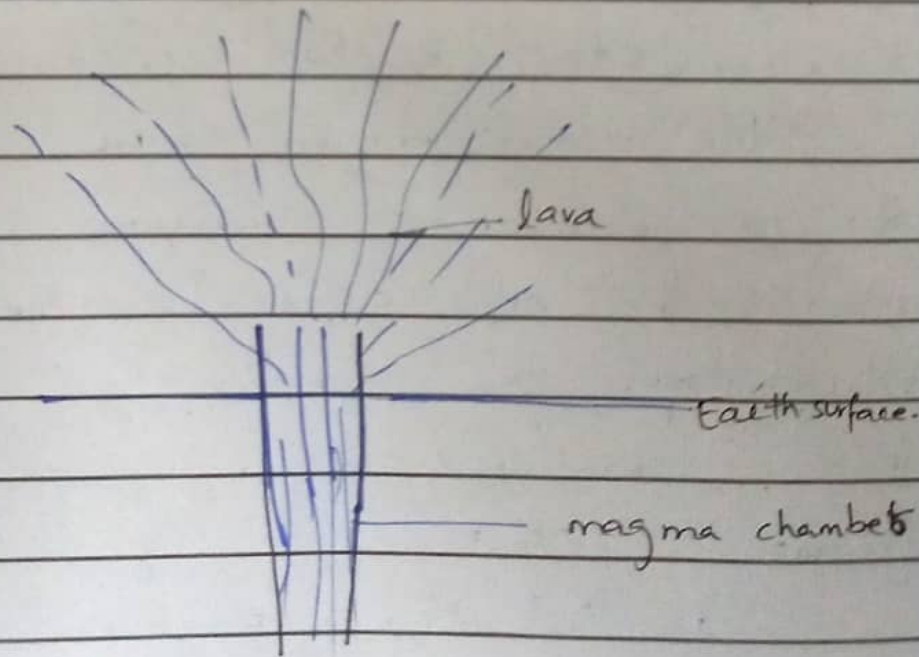 lava
Earth surface.
magma chamber